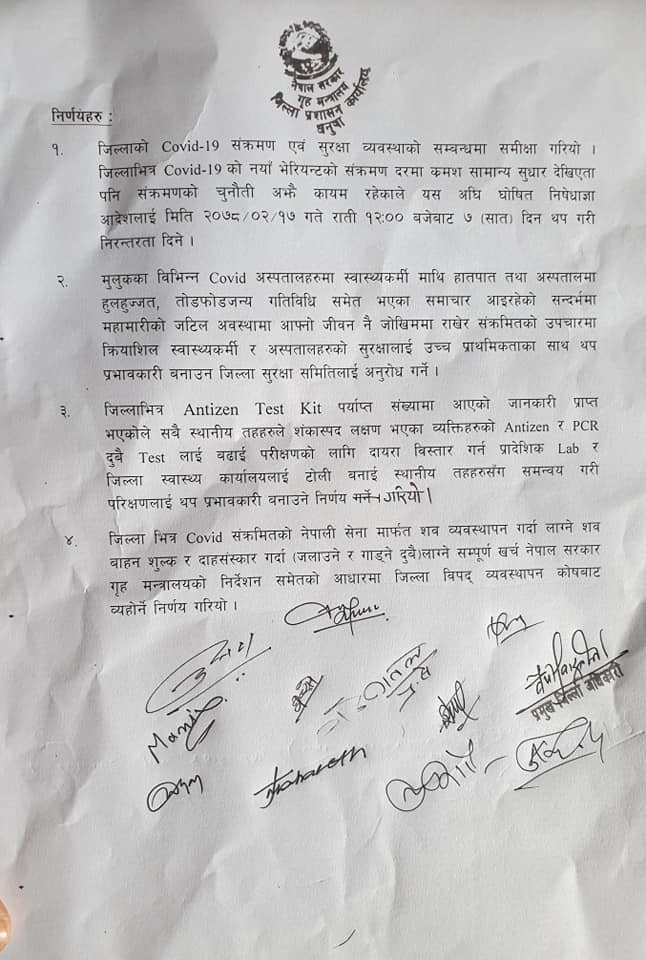 नेपाल सरकार
गृह मन्त्रालय
जिल्ला प्रशासन कार्यालय
धनुषा
निर्णयहरु :
१. जिल्लाको Covid-19 संक्रमण एवं सुरक्षा व्यवस्थाको सम्बन्धमा समीक्षा गरियो ।
जिल्लाभित्र Covid-19 को नयाँ भेरियन्टको संक्रमण दरमा क्रमश सामान्य सुधार देखिएता
पनि संक्रमणको चुनौती अझै कायम रहेकाले यस अघि घोषित निषेधाज्ञा
आदेशलाई मिति २०७८/०२/१७ गते राती १२:०० बजेबाट ७ (सात) दिन थप गरी
निरन्तरता दिने ।
२. मुलुकका विभिन्न Covid अस्पतालहरुमा स्वास्थ्यकर्मी माथि हातपात तथा अस्पतालमा
हुलहुज्जत, तोडफोडजन्य गतिविधि समेत भएका समाचार आइरहेको सन्दर्भमा
महामारीको जटिल अवस्थामा आफ्नो जीवन नै जोखिममा राखेर संक्रमितको उपचारमा
क्रियाशिल स्वास्थ्यकर्मी र अस्पतालहरुको सुरक्षालाई उच्च प्राथमिकताका साथ थप
प्रभावकारी बनाउन जिल्ला सुरक्षा समितिलाई अनुरोध गर्ने ।
३. जिल्लाभित्र Antizen Test Kit पर्याप्त संख्यामा आएको जानकारी प्राप्त
भएकोले सबै स्थानीय तहहरुले शंकास्पद लक्षण भएका व्यक्तिहरुको Antizen र PCR
दुबै Test लाई बढाई परीक्षणको लागि दायरा विस्तार गर्न प्रादेशिक Lab र
जिल्ला स्वास्थ्य कार्यालयलाई टोली बनाई स्थानीय तहहरुसंग समन्वय गरी
परिक्षणलाई थप प्रभावकारी बनाउने निर्णय गर्ने । गरियो ।
४. जिल्ला भित्र Covid संक्रमितको नेपाली सेना मार्फत शव व्यवस्थापन गर्दा लाग्ने शव
बाहन शुल्क र दाहसंस्कार गर्दा (जलाउने र गाड्ने दुबै)लाग्ने सम्पूर्ण खर्च नेपाल सरकार
गृह मन्त्रालयको निर्देशन समेतको आधारमा जिल्ला विपद् व्यवस्थापन कोषबाट
व्यहोर्ने निर्णय गरियो ।
प्रमुख जिल्ला अधिकारी